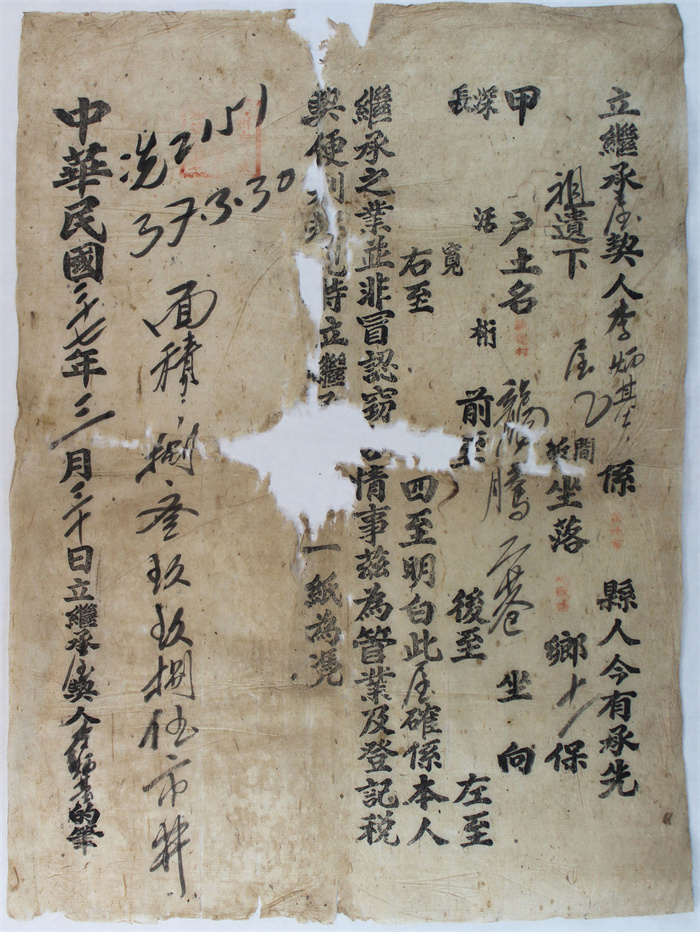 立繼承屋契人李炳基係 縣人今有承先
祖遺下 屋 間坐落 鄉十保
甲 戶土名 龍騰 巷 坐 向
深 活 桁 前至 後至 左至
長 寬 右至 四至明白此屋確係本人
繼承之業並非冒認竊 情事茲為管業及登記稅
契便利 特立繼 一紙為凭
面積 捌叁玖玖捌伍市井
冼2151
37.3.30
中華民國三十七年三月三十日立繼承屋契人李炳基的筆